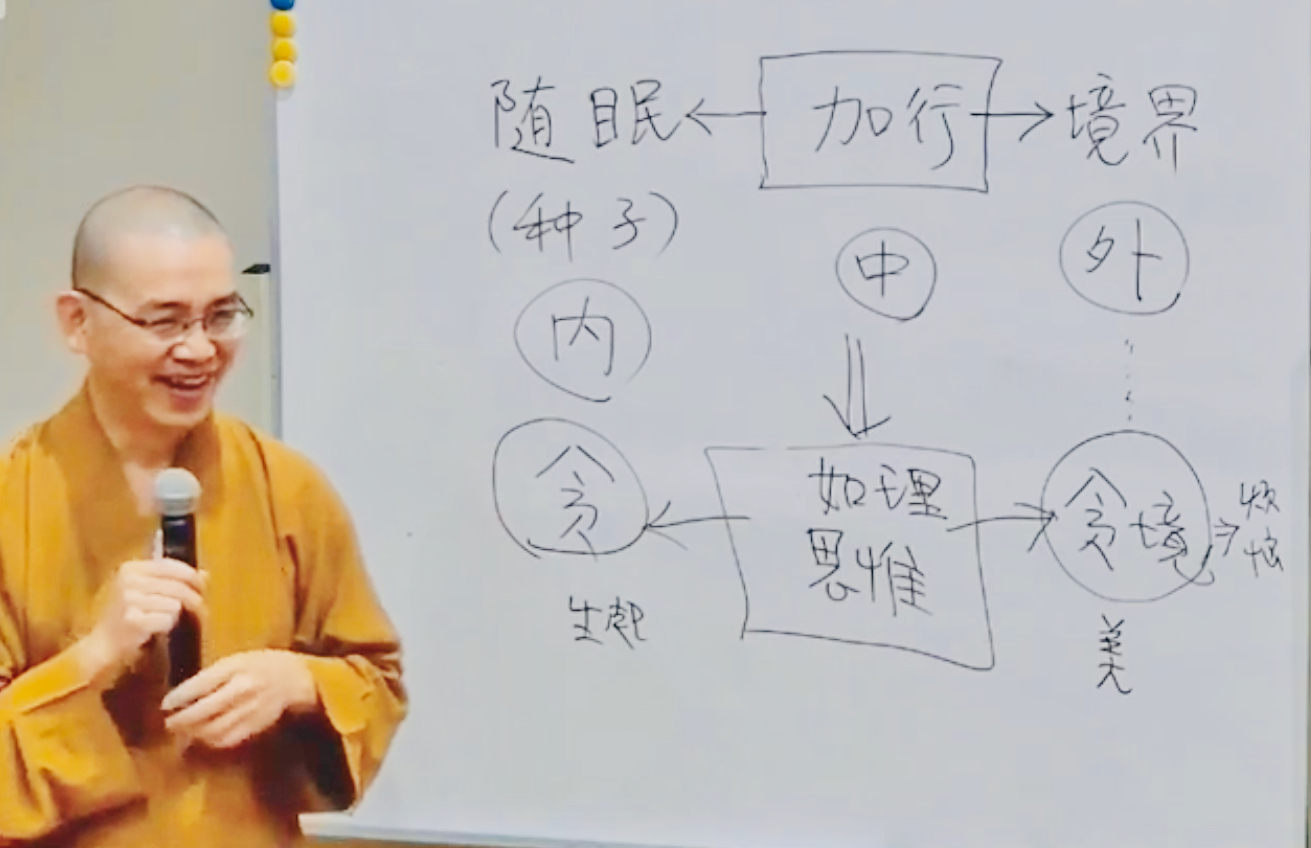 随眠 ← 加行 → 境界
(种子)
内 中 外
贪 ← 如理思惟 → 贪境 → 烦恼
生起 美